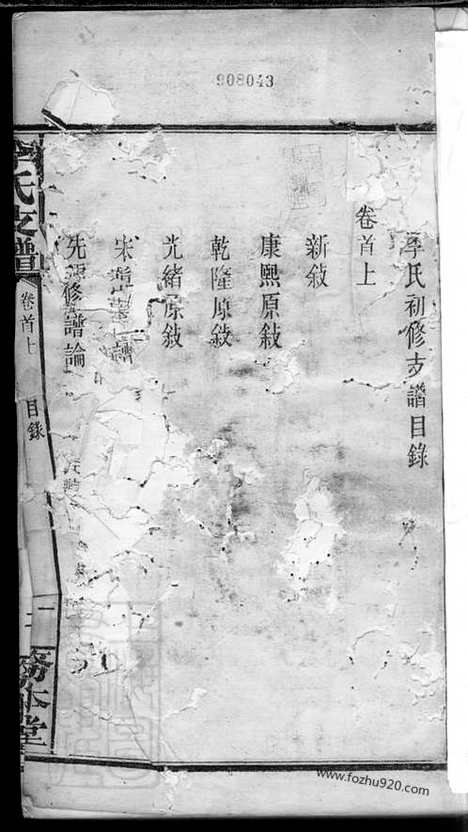 908043
氏初修支譜目錄
卷首上
新敍
康熙原敍
乾隆原敍
光緒原敍
修譜論
氏支譜
卷首上
目錄
一
務本堂
www.fozhu920.com